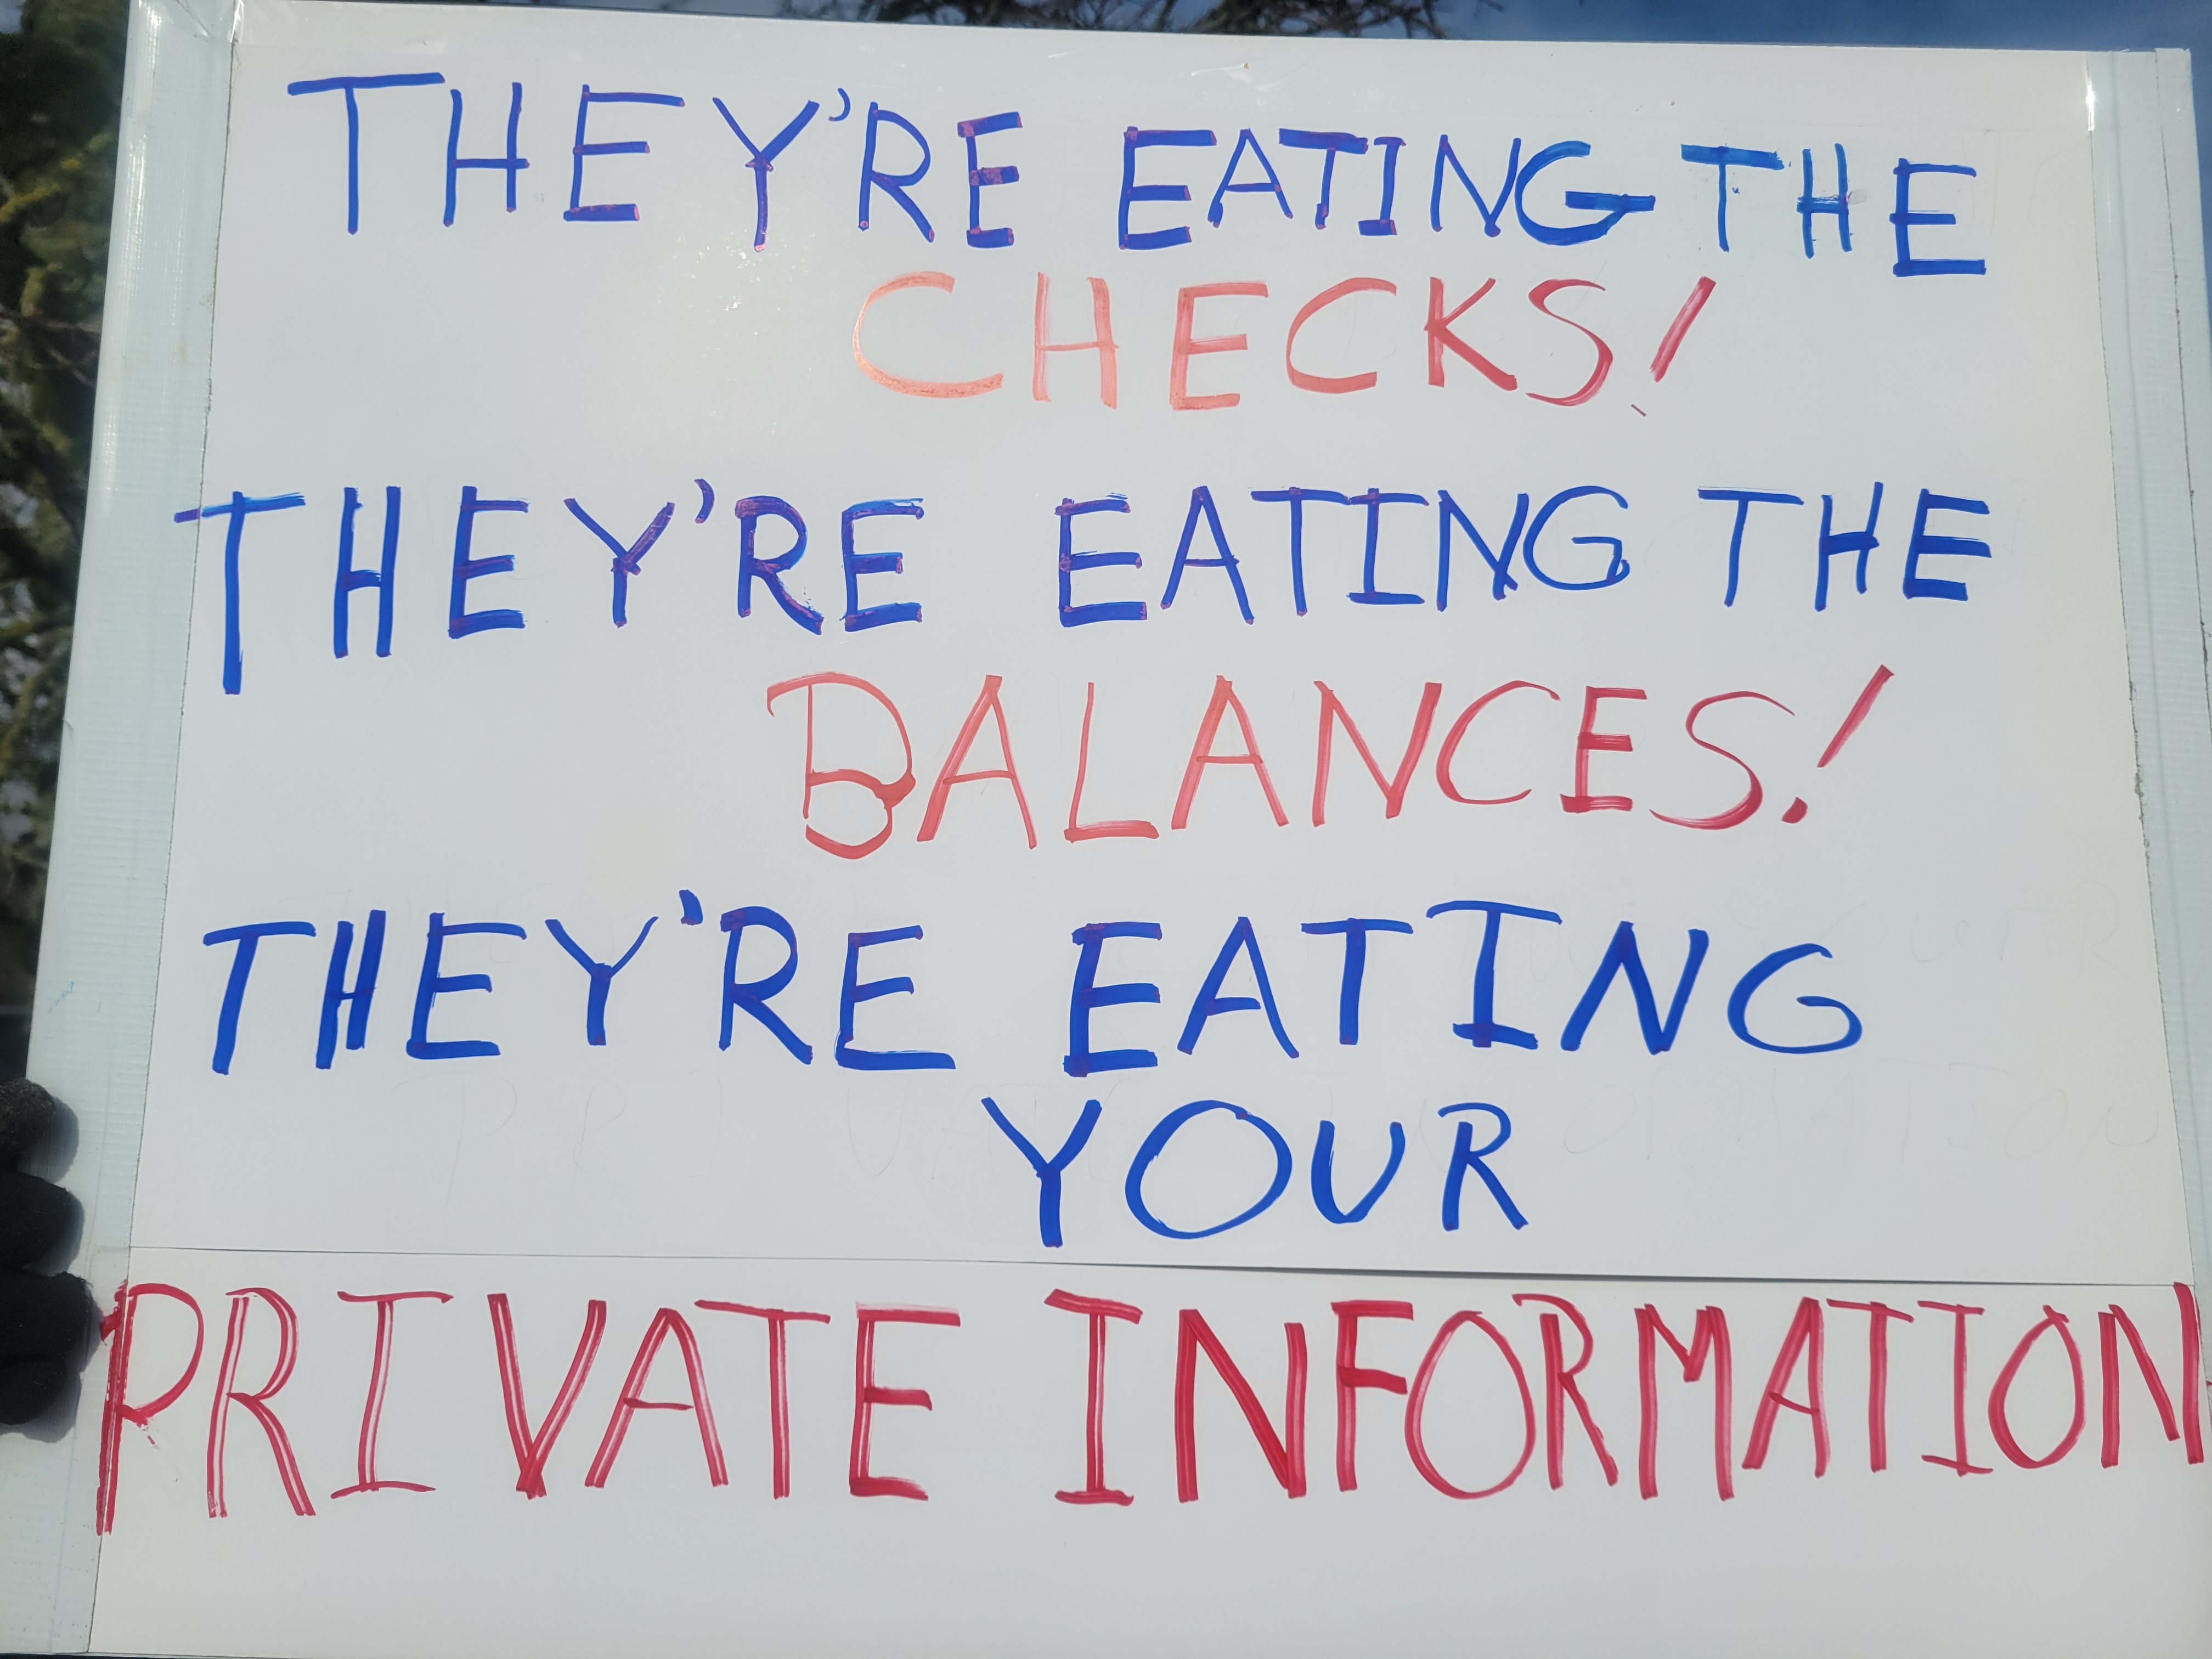 THEY'RE EATING THE
CHECKS!
THEY'RE EATING THE
BALANCES!
THEY'RE EATING
YOUR
PRIVATE INFORMATION